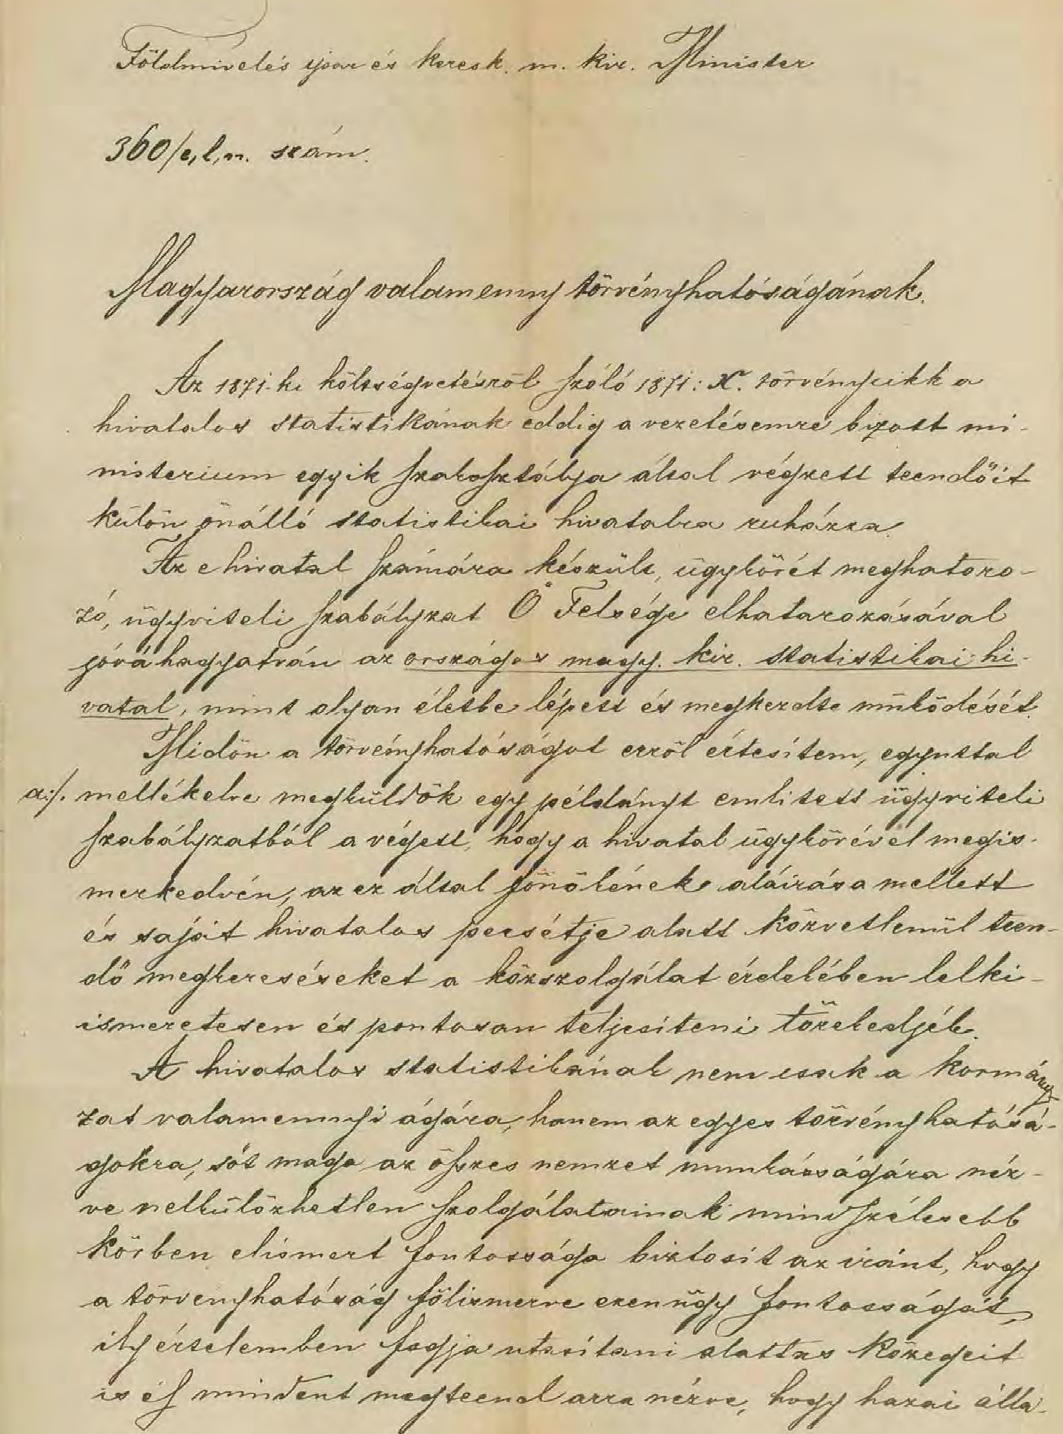 Földmivelés ipar és keresk. m. kir. Minister
360/e,l,n. szám.
Magyarország valamenny törvényhatóságának.
Az 1871-ki költségvetésről szóló 1871: X. törvénycikk a
hivatalos statistikának eddig a vezetésemre bizott mi-
nisterium egyik szakosztálya által végzett teendőit
külön önálló statistikai hivatalra ruházza.
Az e hivatal számára készült, ügykörét meghatoro-
zó, ügyviteli szabályzat Ő Felsége elhatarozásával
jóváhagyatván az országos magy. kir. statistikai hi-
vatal, mint olyan életbe lépett és megkezdte működését.
Midőn a törvényhatóságot erről értesítem, egyuttal
a./. mellékelve megküldök egy példányt emlitett ügyviteli
szabályzatból a végett, hogy a hivatal ügykörével megis-
merkedvén, az ez által főnökének aláirása mellett
és saját hivatalos pecsétje alatt közvetlenül teen-
dő megkereséseket a közszolgálat érdekében lelki-
ismeretesen és pontosan teljesíteni törekedjék.
A hivatalos statistikának nem csak a kormány-
zat valamennyi ágára, hanem az egyes törvényhatósá-
gokra, sőt maga az összes nemzet munkásságára néz-
ve nelkülözhetlen szolgálatainak mind szélesebb
körben elismert fontossága biztosít az iránt, hogy
a törvenyhatóság fölismerve ezen ügy fontosságát,
ily értelemben fogja utasítani alattas közegeit
is és mindent megteend arra nézve, hogy hazai álla-